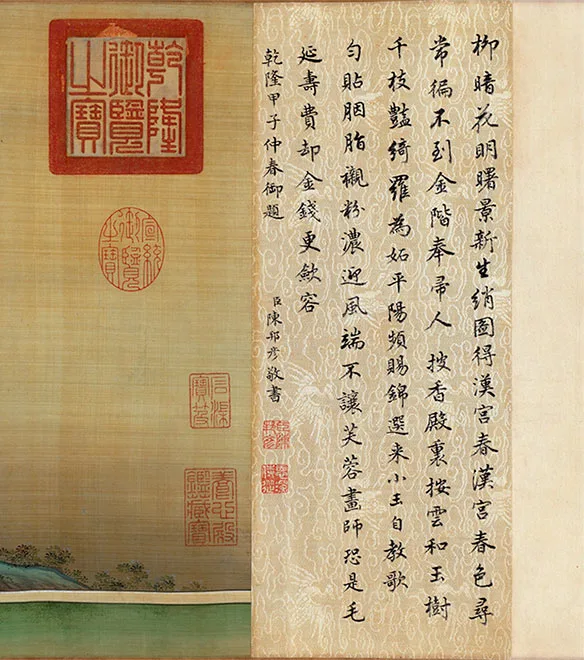 柳暗花明曙景新生綃圖得漢宮春漢宮春色尋
常徧不到金階奉帚人披香殿裏按雲和玉樹
千枝豔綺羅為妬平陽頻賜錦選来小玉自教歌
勻貼胭脂襯粉濃迎風端不讓芙蓉畫師恐是毛
延壽費却金錢更斂容
乾隆甲子仲春御題
臣陳邦彦敬書
乾隆御覽之寶
宣統御覽之寶
石渠寶笈
養心殿鑑藏寶